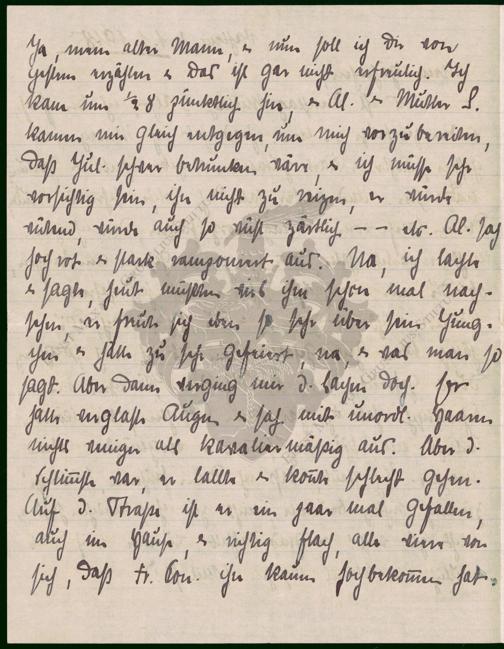 Ja, mein alter Mann, u nun soll ich Dir von
gestern erzählen u das ist gar nicht erfreulich. Ich
kam um ½ 8 pünktlich hin, u Al. u Mutter L.
kamen mir gleich entgegen, um mich vorzubereiten,
daß Jul. schwer betrunken wäre, u ich müsse sehr
vorsichtig sein, ihn nicht zu reizen, er würde
wütend, würde auch so zärtlich — — etc. Al. sah
hochrot u stark ramponiert aus. Na, ich lachte
u sagte, heut müßten wir's ihm schon mal nach-
sehen, er freute sich eben so sehr über sein Jüng-
chen u hätte zu sehr gefeiert, na u was man so
sagt. Aber dann verging mir d. Lachen doch. Er
hatte verglaste Augen u sah mit unordl. Haaren
nichts weniger als kavaliermäßig aus. Aber d.
Schlimmste war, er lallte u konnte schlecht gehen.
Auf d. Straße ist er ein paar mal gefallen,
auch im Hause, u richtig flach, alle viere von
sich, daß Fr. Con. ihn kaum hochbekommen hat.